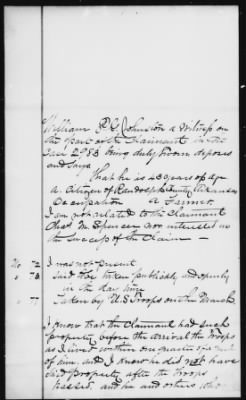 William P. Y. Johnston a Witness on
the part of the Claimant in the
Case 2983 being duly sworn deposes
and Says
That he is 43 years of age
a Citizen of Randolph County Arkansas
Occupation a Farmer
I am not related to the Claimant
Chas M. Spencer nor interested in
the success of the Claim —
No 72 I was not present
" 73 Said they taken publickly and openly
in the day time
" 77 Taken by U.S. Troops on the March
I know that the Claimant had such
property before the arrival the troops
as I lived within one quarter of a mile
of him. and I know he did not have
said Property after the Troops
passed, and he and others who